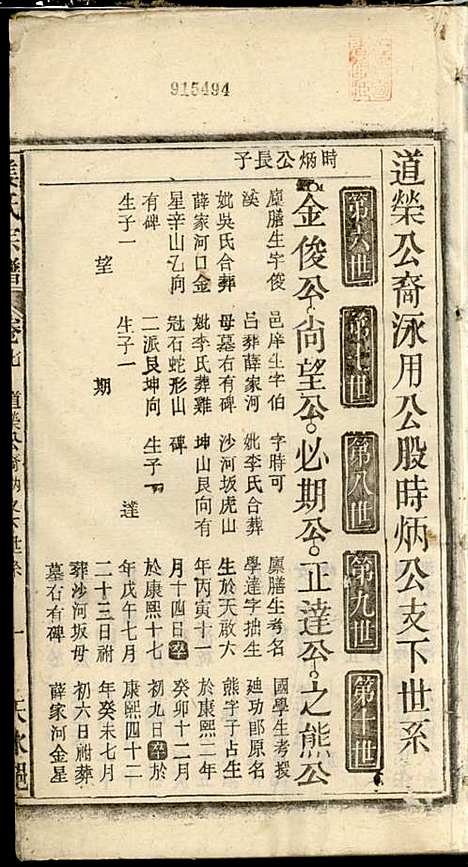 915494
道榮公裔泳用公股時炳公支下世系
第六世
第七世
第八世
第九世
第十世
時炳公長子
金俊公
尚望公
必期公
正達公
之熊公
廩膳生字俊
溪
妣吳氏合葬
薛家河口金
星辛山乙向
有碑
生子一
望
邑庠生字伯
呂葬薛家河
母墓右有碑
妣李氏葬雞
冠石蛇形山
二派艮坤向
生子一
期
字時可
妣李氏合葬
沙河坂虎山
坤山艮向有
碑
生子一
達
廩膳生考名
學達字拙生
生於天啟六
年丙寅十一
月十四日卒
於康熙十七
年戊午七月
二十三日祔
葬沙河坂母
墓右有碑
國學生考授
廸功郎原名
熊字子占生
於康熙二年
癸卯十二月
初九日卒於
康熙四十二
年癸未七月
初六日祔葬
薛家河金星
氏宗譜
卷七
道榮公裔炳公下世系
一